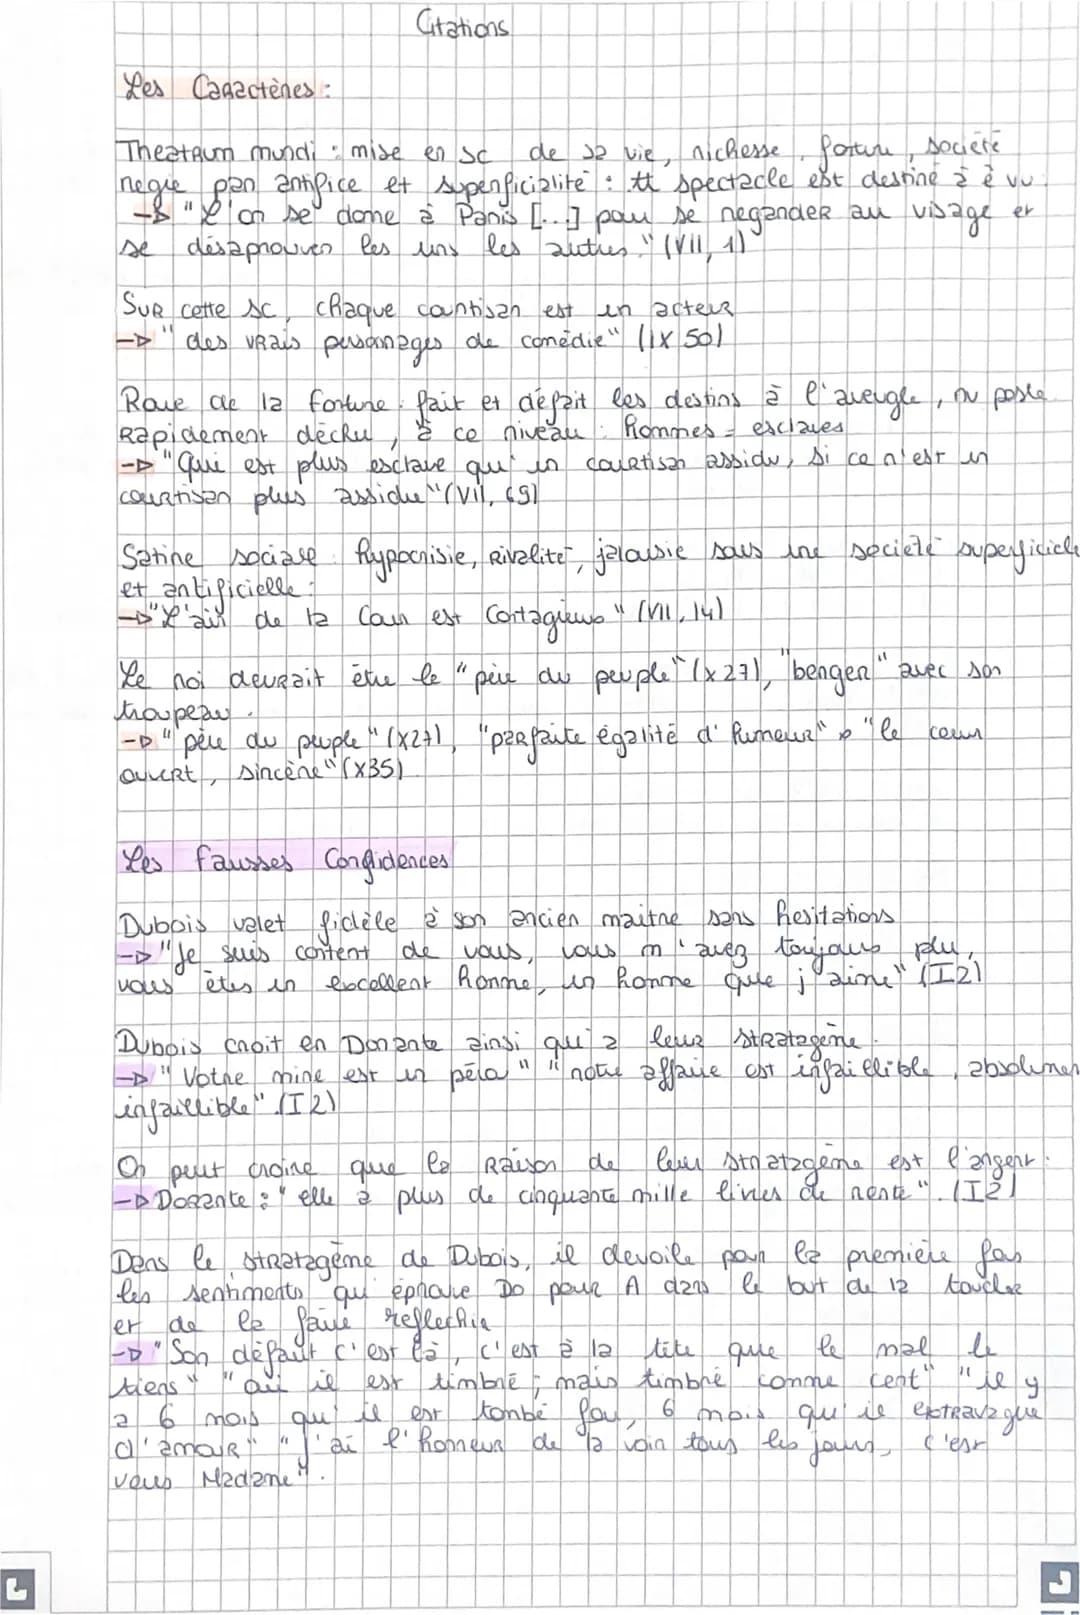 Citations
Les Caractères :
Theatrum mundi : mise en sc de sa vie, richesse, fortune, société
regie par artifice et superficialité : tt spectacle est destiné à ê vu
-> "L'on se donne à Paris [...] pour se regarder au visage et
se désaprouver les uns les autres." (VII, 1)
Sur cette sc, chaque courtisan est un acteur
-> "des vrais personnages de comédie" (IX 50)
Roue de la fortune : fait et défait les destins à l'aveugle, nv poste
Rapidement déchu, à ce niveau : hommes = esclaves
-> "Qui est plus esclave qu'un courtisan assidu, si ce n'est un
courtisan plus assidue" (VII, 69)
Satire sociale : hypocrisie, rivalité, jalousie sous une société superficielle
et artificielle :
-> "L'air de la Cour est Contagieux" (VII, 14)
Le roi devrait être le "père du peuple" (X 27), "berger" avec son
troupeau.
-> "père du peuple" (X27), "parfaite égalité d'humeur" "le cœur
ouvert, sincère" (X35)
Les Fausses Confidences
Dubois valet fidèle à son ancien maitre sans hesitations
-> "Je suis content de vous, vous m'avez toujours plu,
vous êtes un excellent homme, un homme que j'aime" (I2)
Dubois croit en Dorante ainsi qu'a leur stratagème.
-> "Votre mine est un péro" "notre affaire est infaillible, absolumen
infaillible" (I2)
On peut croire que la Raison de leur stratagème est l'argent.
-> Dorante : "elle a plus de cinquante mille livres de rente". (I2)
Dans le stratagème de Dubois, il devoile pour la première fois
les sentiments qui éprouve Do pour A dans le but de la toucher
et de la faire reflechir
-> "Son défaut c'est là, c'est à la tête que le mal le
tiens" "oui il est timbré ; mais timbré comme cent" "il y
a 6 mois qu'il est tombé fou, 6 mois qu'il extravague
d'amour" "j'ai l'honneur de la voir tous les jours, c'est
vous Madame".